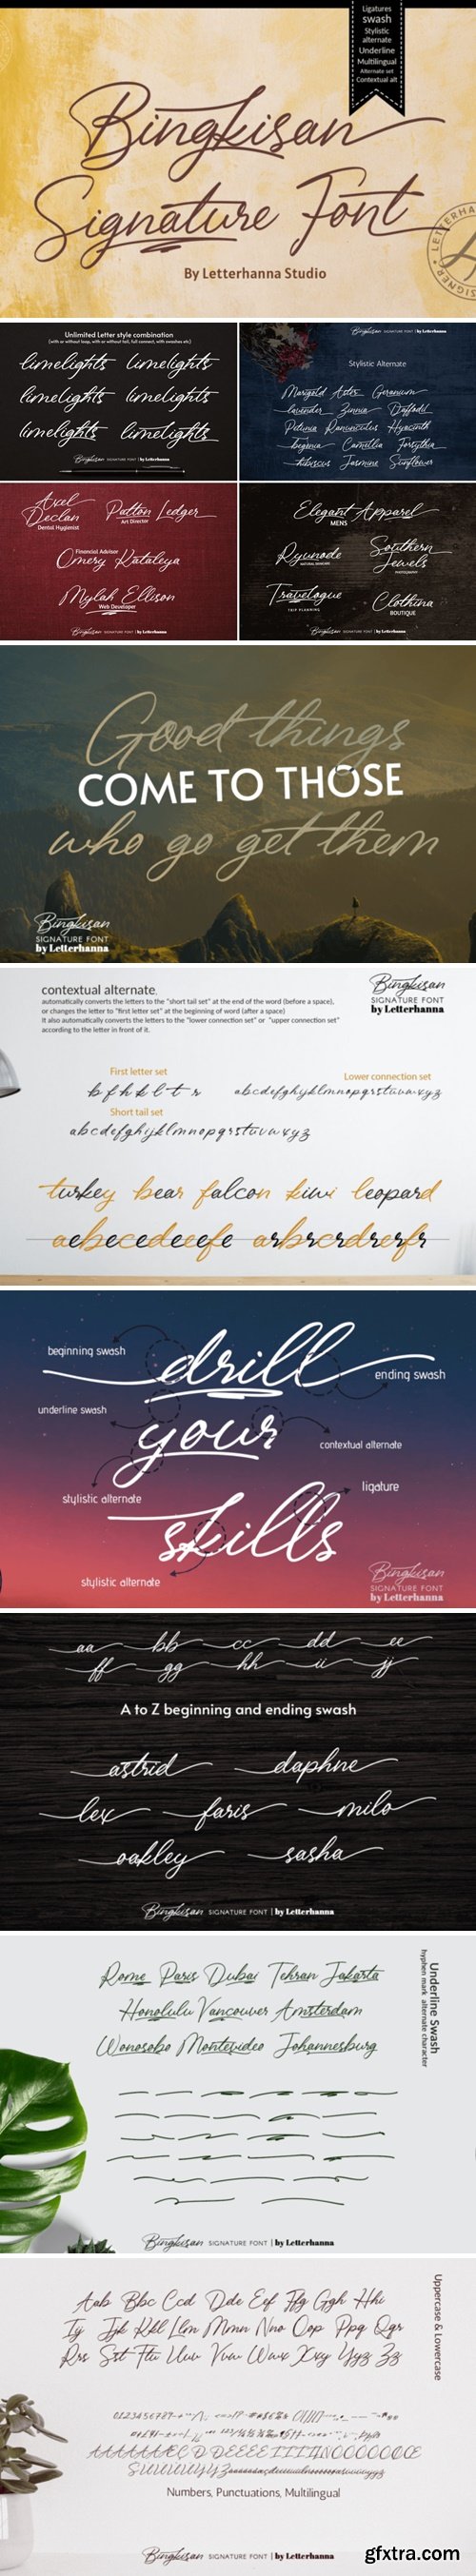 Ligatures
swash
Stylistic
alternate
Underline
Multilingual
Alternate set
Contextual alt
Bingkisan
Signature Font
By Letterhanna Studio
Unlimited Letter style combination
(with or without loop, with or without tail, full connect, with swashes etc)
limelights limelights
limelights limelights
limelights limelights
Bingkisan SIGNATURE FONT | by Letterhanna
Bingkisan SIGNATURE FONT | by Letterhanna
Stylistic Alternate
Marigold Aster Geranium
lavender Zinnia Daffodil
Petunia Ranunculus Hyacinth
begonia Camillia Forsythia
hibiscus Jasmine Sunflower
Axel
Declan
Dental Hygienist
Patton Ledger
Art Director
Financial Advisor
Omery Kataleya
Mylah Ellison
Web Developer
Bingkisan SIGNATURE FONT | by Letterhanna
Elegant Apparel
MENS
Ryunode
NATURAL SKINCARE
Southern
Jewels
PHOTOGRAPHY
Travelogue
TRIP PLANNING
Clothina
BOUTIQUE
Bingkisan SIGNATURE FONT | by Letterhanna
Good things
COME TO THOSE
who go get them
Bingkisan
SIGNATURE FONT
by Letterhanna
contextual alternate.
automatically converts the letters to the "short tail set" at the end of the word (before a space),
or changes the letter to "first letter set" at the beginning of word (after a space)
It also automatically converts the letters to the "lower connection set" or "upper connection set"
according to the letter in front of it.
Bingkisan
SIGNATURE FONT
by Letterhanna
First letter set
b f h k l t r
Lower connection set
abcdefghijklmnopqrstuvwxyz
Short tail set
abcdefghijklmnopqrstuvwxyz
turkey bear falcon kiwi leopard
aebecedeeefe arbrcrdrerfr
beginning swash
drill
ending swash
underline swash
your
contextual alternate
stylistic alternate
ligature
skills
stylistic alternate
Bingkisan
SIGNATURE FONT
by Letterhanna
aa bb cc dd ee
ff gg hh ii jj
A to Z beginning and ending swash
astrid daphne
lex faris milo
oakley sasha
Bingkisan SIGNATURE FONT | by Letterhanna
Rome Paris Dubai Tehran Jakarta
Honolulu Vancouver Amsterdam
Wonosobo Montevideo Johannesburg
Underline Swash
hyphen mark alternate character
Bingkisan SIGNATURE FONT | by Letterhanna
Aab Bbc Ccd Dde Eef Ffg Ggh Hhi
Iij Jjk Kkl Llm Mmn Nno Oop Ppq Qqr
Rrs Sst Ttu Uuv Vvw Wwx Xxy Yyz Zz
Uppercase & Lowercase
Numbers, Punctuations, Multilingual
Bingkisan SIGNATURE FONT | by Letterhanna
gfxtra.com